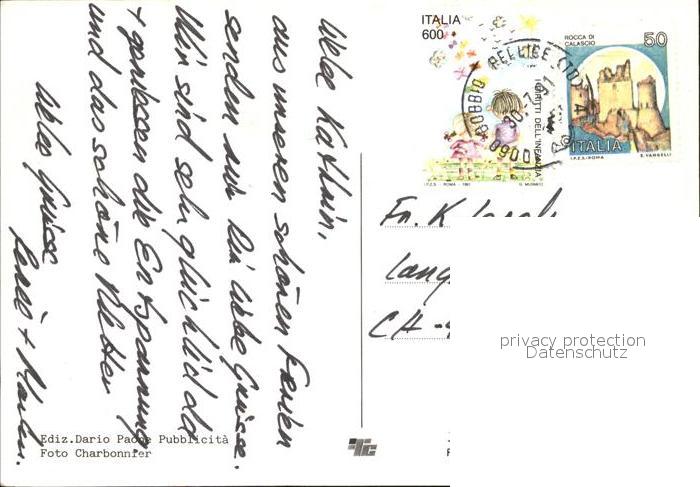 Liebe Kathrin,
aus unseren schönen Ferien
senden wir Dir liebe Grüsse.
Wir sind sehr glücklich da
+ geniessen die Entspannung
und das schöne Wetter
Liebe Grüsse
+
ITALIA
600
I DIRITTI DELL'INFANZIA
I.P.Z.S. - ROMA - 1991
ROCCA DI
CALASCIO
50
ITALIA
I.P.Z.S. - ROMA
E. VANGELLI
BOBBIO PELLICE (TO)
10060
Fr. K
Lang
CH -
privacy protection
Datenschutz
Ediz.Dario Pubblicità
Foto Charbonnier